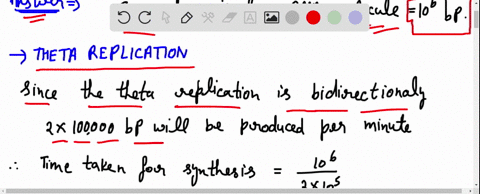 Answer ⇒ molecule = 10⁶ bp.
→ THETA REPLICATION
Since the theta replication is bidirectionaly
2 x 100,000 bP will be produced per minute
∴ Time taken for synthesis = 10⁶ / 2 x 10⁵